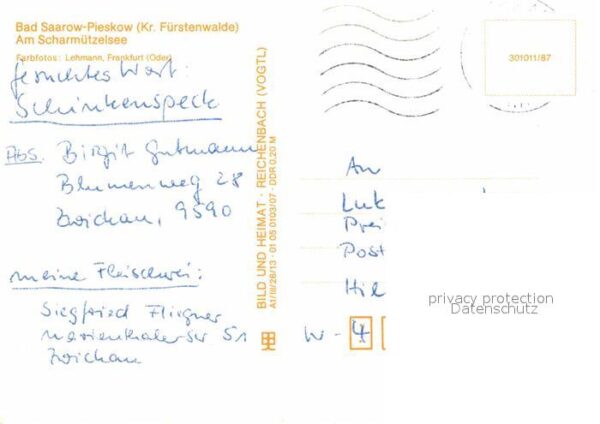 Bad Saarow-Pieskow (Kr. Fürstenwalde)
Am Scharmützelsee
Farbfotos: Lehmann, Frankfurt (Oder)
gesuchtes Wort:
Schinkenspeck
Abs. Birgit Gutmann
Blumenweg 28
Zwickau, 9590
meine Fleischerei:
Siegfried Flirgner
Marienthaler Str 51
Zwickau
BILD UND HEIMAT · REICHENBACH (VOGTL)
A1/III/26/13 · 01 05 0103/07 · DDR 0,20 M
301011/87
An
Luk
Prei
Post
Hil
W - 4
privacy protection
Datenschutz